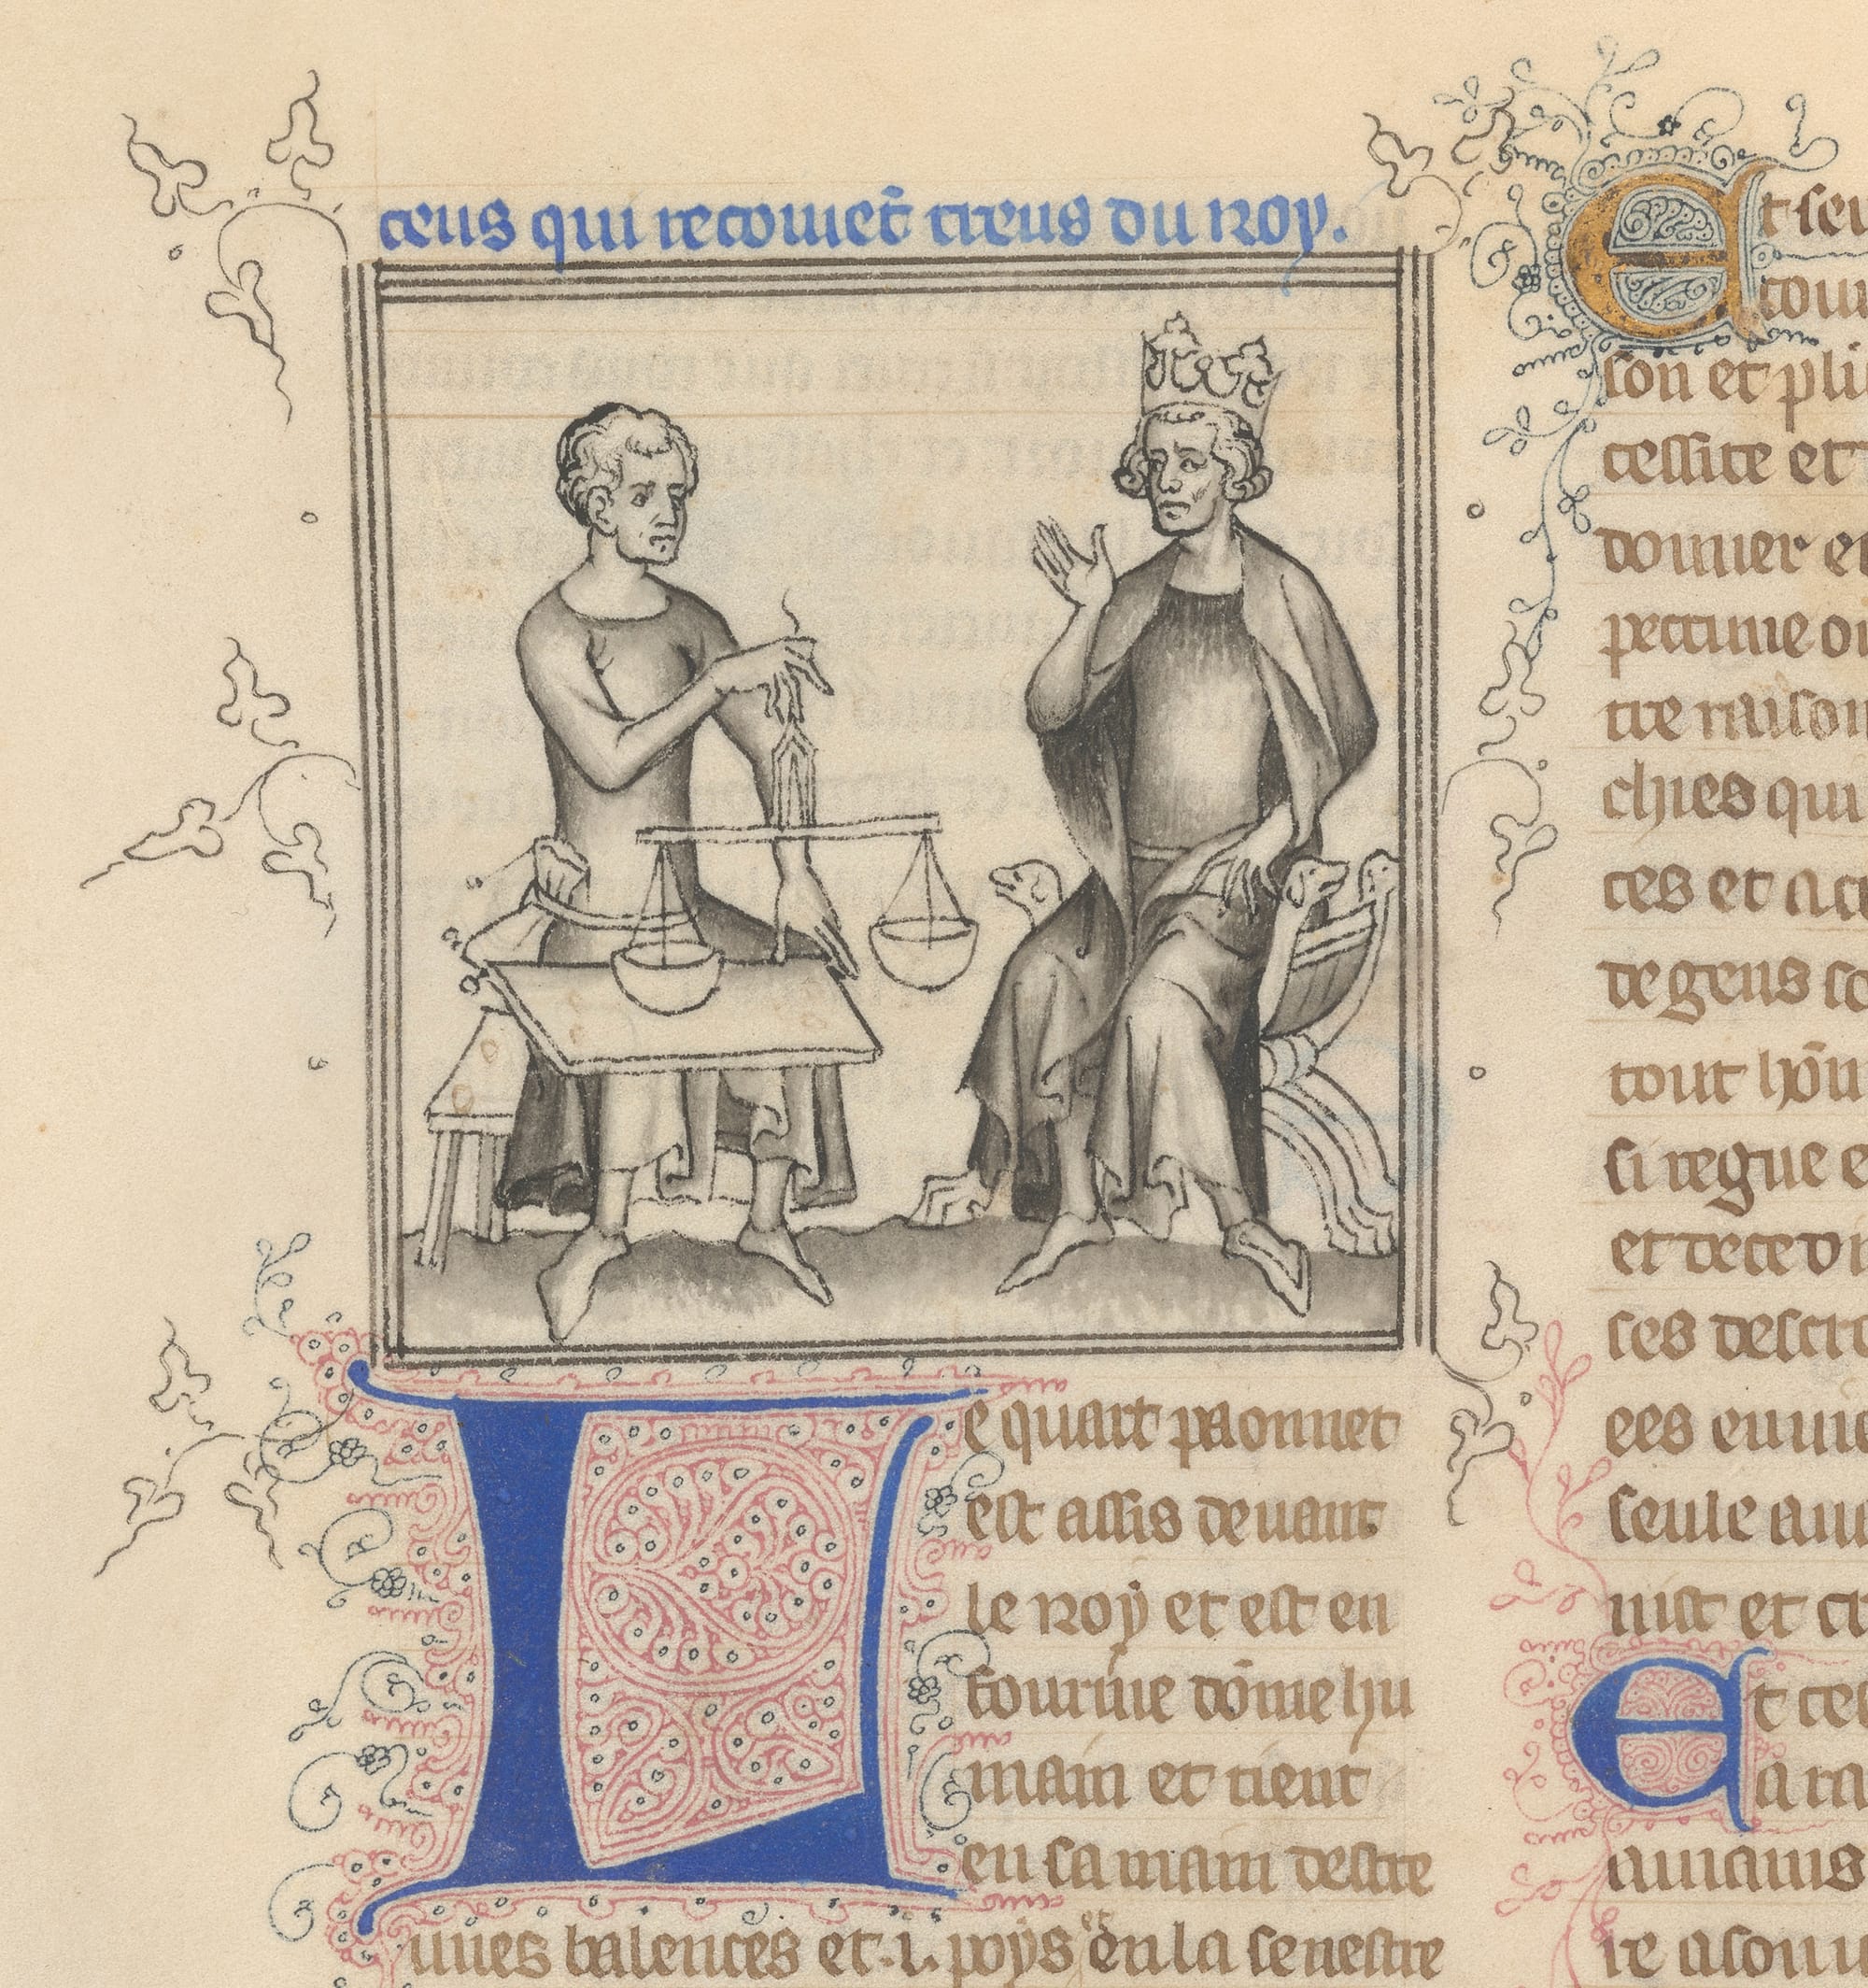 ceus qui recoiuet treus du Roy.
Le quart paonnet
est assis deuant
le Roy et est en
fourme dōme hu
main et tient
en sa main destre
unes balences et .i. poys et en la senestre
Et seu
cou
son et pli
cessite et
donner et
peccune ou
tre raison
chies qui
ces et a
de gens
tout hōm
si regne e
et decevr
ses descro
ees enui
seule au
nist et cr
Et ces
a ra
auiauis
re a son u